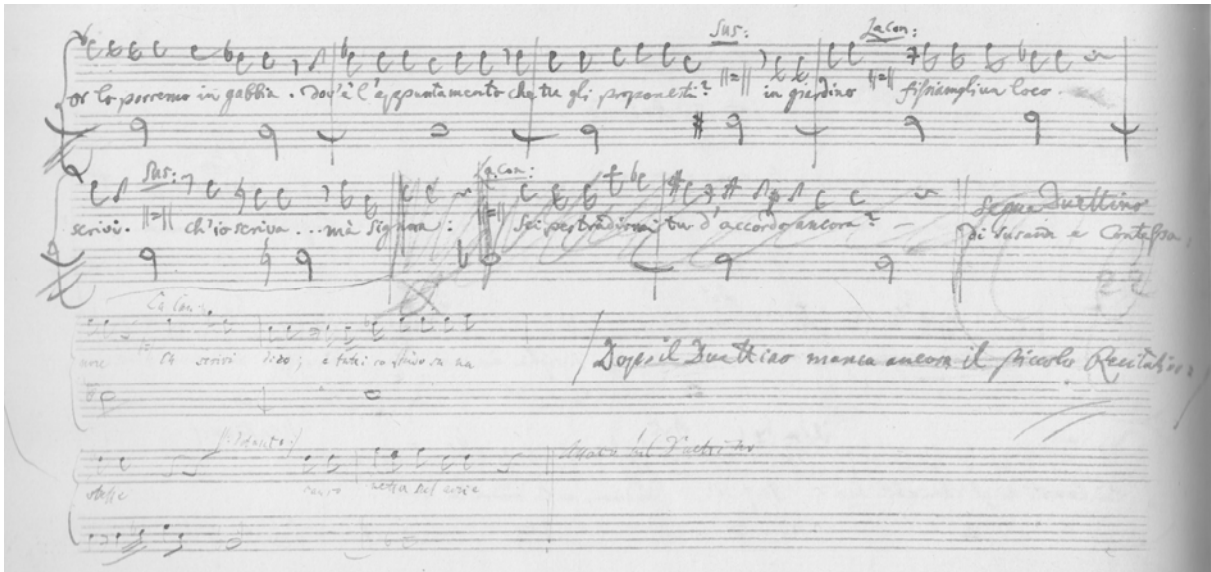 Sus: La Con:
or lo porremo in gabbia. dov'è l'appuntamento che tu gli proponesti? in giardino fissiamgli un loco.
Sus: La Con:
scrivi. ch'io scriva ... mà Signora: Sei per tradirmi tu d'accordo ancora? Segue Duettino
di Susanna e Contessa,
La Con:
Eh scrivi dico; e tutti io su me
Dopo il Duettino manca ancora il piccolo Recitativo
stesse